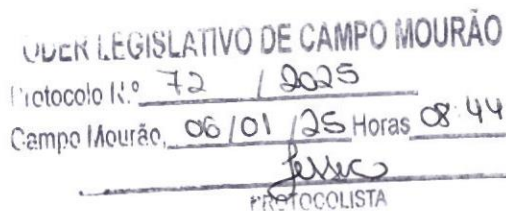 PODER LEGISLATIVO DE CAMPO MOURÃO
Protocolo N.º 72 / 2025
Campo Mourão, 06 / 01 / 25 Horas 08:44
PROTOCOLISTA